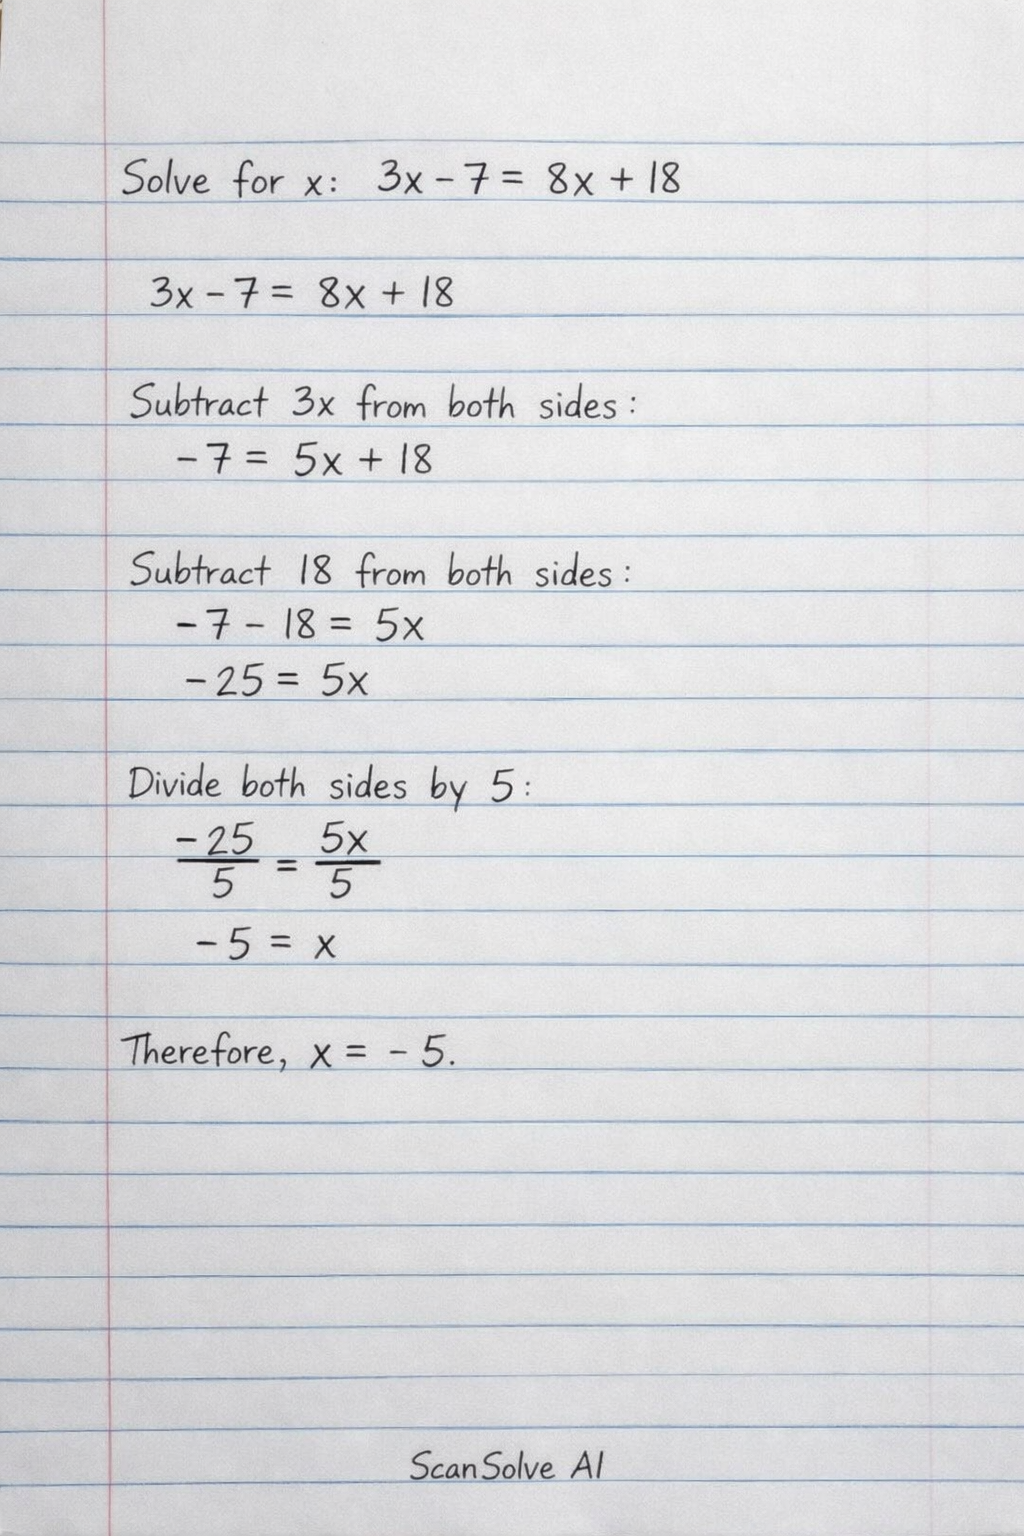 Solve for x: 3x - 7 = 8x + 18
3x - 7 = 8x + 18
Subtract 3x from both sides:
-7 = 5x + 18
Subtract 18 from both sides:
-7 - 18 = 5x
-25 = 5x
Divide both sides by 5:
-25/5 = 5x/5
-5 = x
Therefore, x = -5.
ScanSolve AI